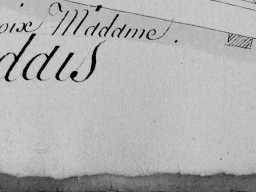 oix Madame.
dais